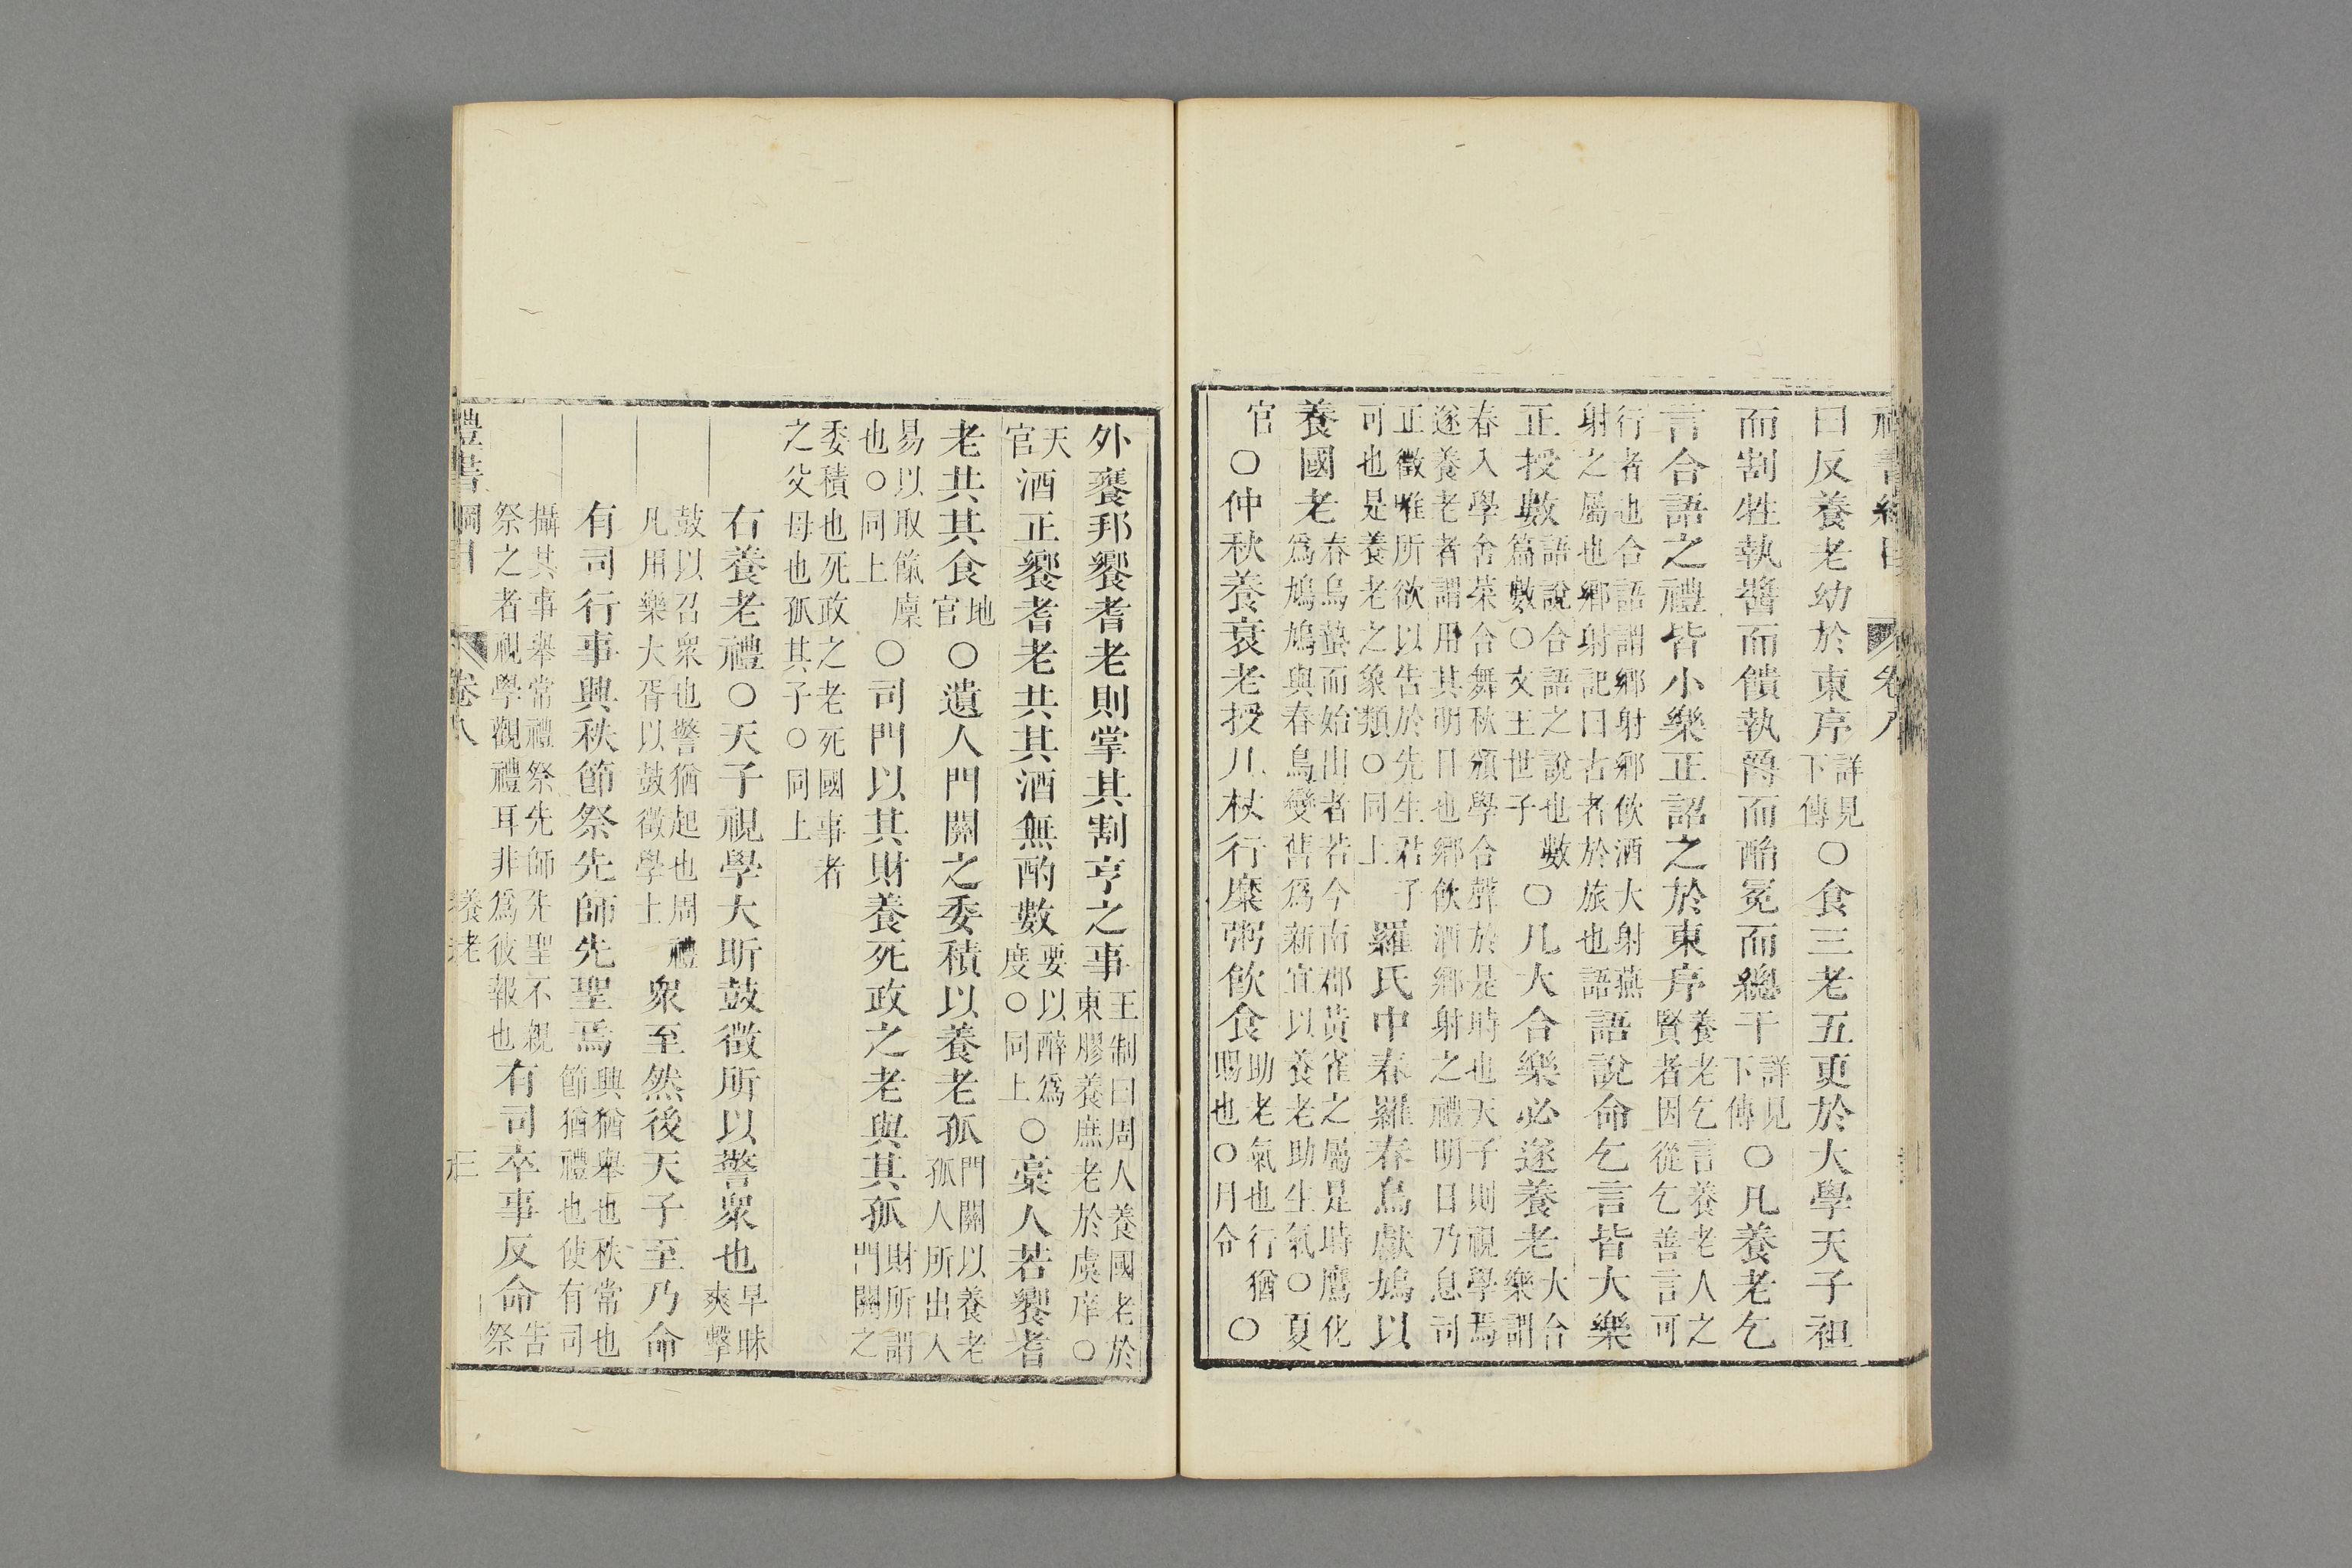 禮書綱目 卷八
曰反養老幼於東序詳見下傳○食三老五更於大學天子袒
而割牲執醬而饋執爵而酳冕而總干詳見下傳○凡養老乞
言合語之禮皆小樂正詔之於東序養老乞言養老人之賢者因從乞善言可
行者也合語謂鄉射鄉飲酒大射燕射之屬也鄉射記曰古者於旅也語語說命乞言皆大樂
正授數語說合語之說也數篇數○文王世子○凡大合樂必遂養老大合樂謂
春入學舍菜合舞秋頒學合聲於是時也天子則視學焉遂養老者謂用其明日也鄉飲酒鄉射之禮明日乃息司
正徵唯所欲以告於先生君子可也是養老之象類○同上羅氏中春羅春鳥獻鳩以
養國老春鳥蟄而始出者若今南郡黃雀之屬是時鷹化爲鳩鳩與春鳥變舊爲新宜以養老助生氣○夏
官○仲秋養衰老授几杖行糜粥飲食助老氣也行猶賜也○月令○
外饔邦饗耆老則掌其割亨之事王制曰周人養國老於東膠養庶老於虞庠○
天官酒正饗耆老共其酒無酌數要以醉爲度○同上○槀人若饗耆
老共其食地官○遺人門關之委積以養老孤門關以養老孤人所出入
易以取餼廩也○同上○司門以其財養死政之老與其孤財所謂門關之
委積也死政之老死國事者之父母也孤其子○同上
右養老禮○天子視學大昕鼓徵所以警衆也早昧爽擊
鼓以召衆也警猶起也周禮凡用樂大胥以鼓徵學士衆至然後天子至乃命
有司行事興秩節祭先師先聖焉興猶舉也秩常也節猶禮也使有司
攝其事舉常禮祭先師先聖不親祭之者視學觀禮耳非爲彼報也有司卒事反命告祭
禮書綱目 卷八 養老